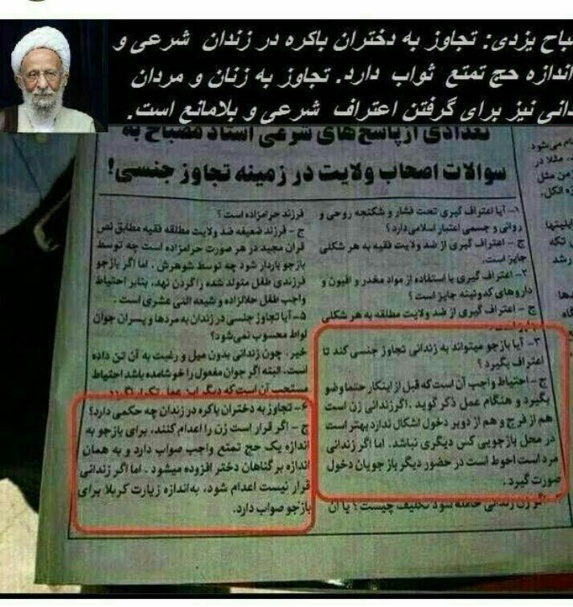 باح یزدی: تجاوز به دختران باکره در زندان شرعی و
اندازه حج تمتع ثواب دارد. تجاوز به زنان و مردان
دانی نیز برای گرفتن اعتراف شرعی و بلامانع است.
تعدادی از پاسخ های شرعی استاد مصباح به
سوالات اصحاب ولایت در زمینه تجاوز جنسی!
۱- آیا اعتراف گیری تحت فشار و شکنجه روحی و
روانی و جسمی اعتبار اسلامی دارد؟
ج - اعتراف گیری از ضد ولایت فقیه به هر شکلی
جایز است.
۲- اعتراف گیری با استفاده از مواد مخدر و افیون و
داروهای کدوئینه جایز است؟
ج - اعتراف گیری از ضد ولایت مطلقه به هر شکلی
۳- آیا بازجو میتواند به زندانی تجاوز جنسی کند تا
اعتراف بگیرد؟
ج - احتیاط واجب آن است که قبل از اینکار حتما وضو
بگیرد و هنگام عمل ذکر گوید. اگر زندانی زن است
هم از فرج و هم از دوبر دخول اشکال ندارد بهتر است
در محل بازجویی کس دیگری نباشد. اما اگر زندانی
مرد است احوط است در حضور دیگر بازجویان دخول
صورت گیرد.
اگر زن زندانی حامله شود تکلیف چیست؟ آیا آن
فرزند حرامزاده است؟
ج - فرزند ضعیفه ضد ولایت مطلقه فقیه مطابق نص
قران مجید در هر صورت حرامزاده است چه توسط
بازجو باردار شود چه توسط شوهرش. اما اگر بازجو
فرزندی طفل متولد شده را گردن نهد، بنابر احتیاط
واجب طفل حلالزاده و شیعه اثنی عشری است.
۵- آیا تجاوز جنسی در زندان به مردها و پسران جوان
لواط محسوب نمی شود؟
خیر. چون زندانی بدون میل و رغبت به آن تن داده
است. البته اگر جوان مفعول را خوشامده باشد احتیاط
مستحب آن است که دیگر این عمل تکرار نگردد
۶- تجاوز به دختران باکره در زندان چه حکمی دارد؟
ج - اگر قرار است زن را اعدام کنند، برای بازجو به
اندازه یک حج تمتع واجب صواب دارد و به همان
اندازه بر گناهان دختر افزوده میشود. اما اگر زندانی
قرار نیست اعدام شود، به اندازه زیارت کربلا برای
بازجو صواب دارد.